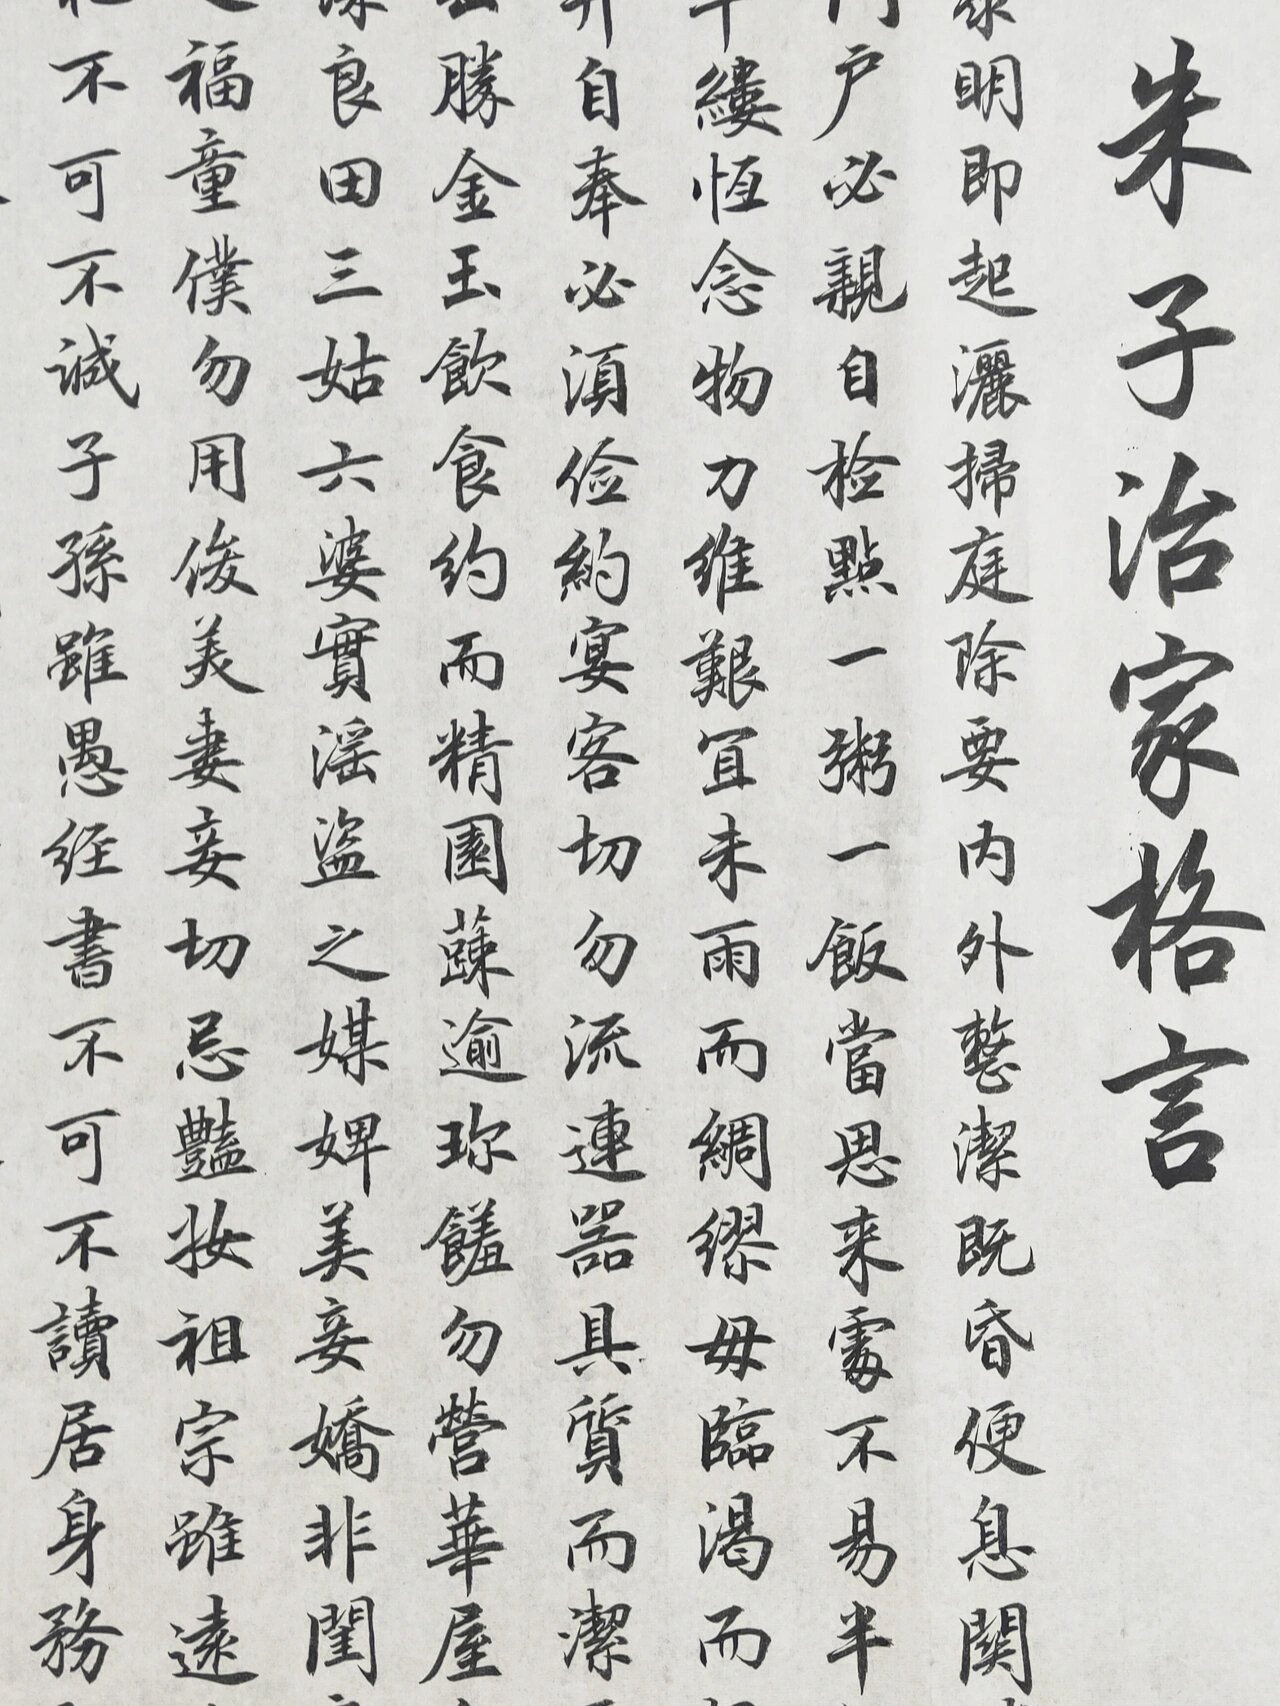 朱子治家格言
黎明即起灑掃庭除要内外整潔既昏便息関
門户必親自检點一粥一飯當思来處不易半
絲縷恆念物力維艱宜未雨而綢缪毋臨渴而
自奉必湏俭約宴客切勿流連器具質而潔
勝金玉飲食约而精園蔬逾珎饈勿營華屋
良田三姑六婆實滛盜之媒婢美妾嬌非閨
福童僕勿用俊美妻妾切忌豔妝祖宗雖遠
不可不诚子孫雖愚经書不可不讀居身務